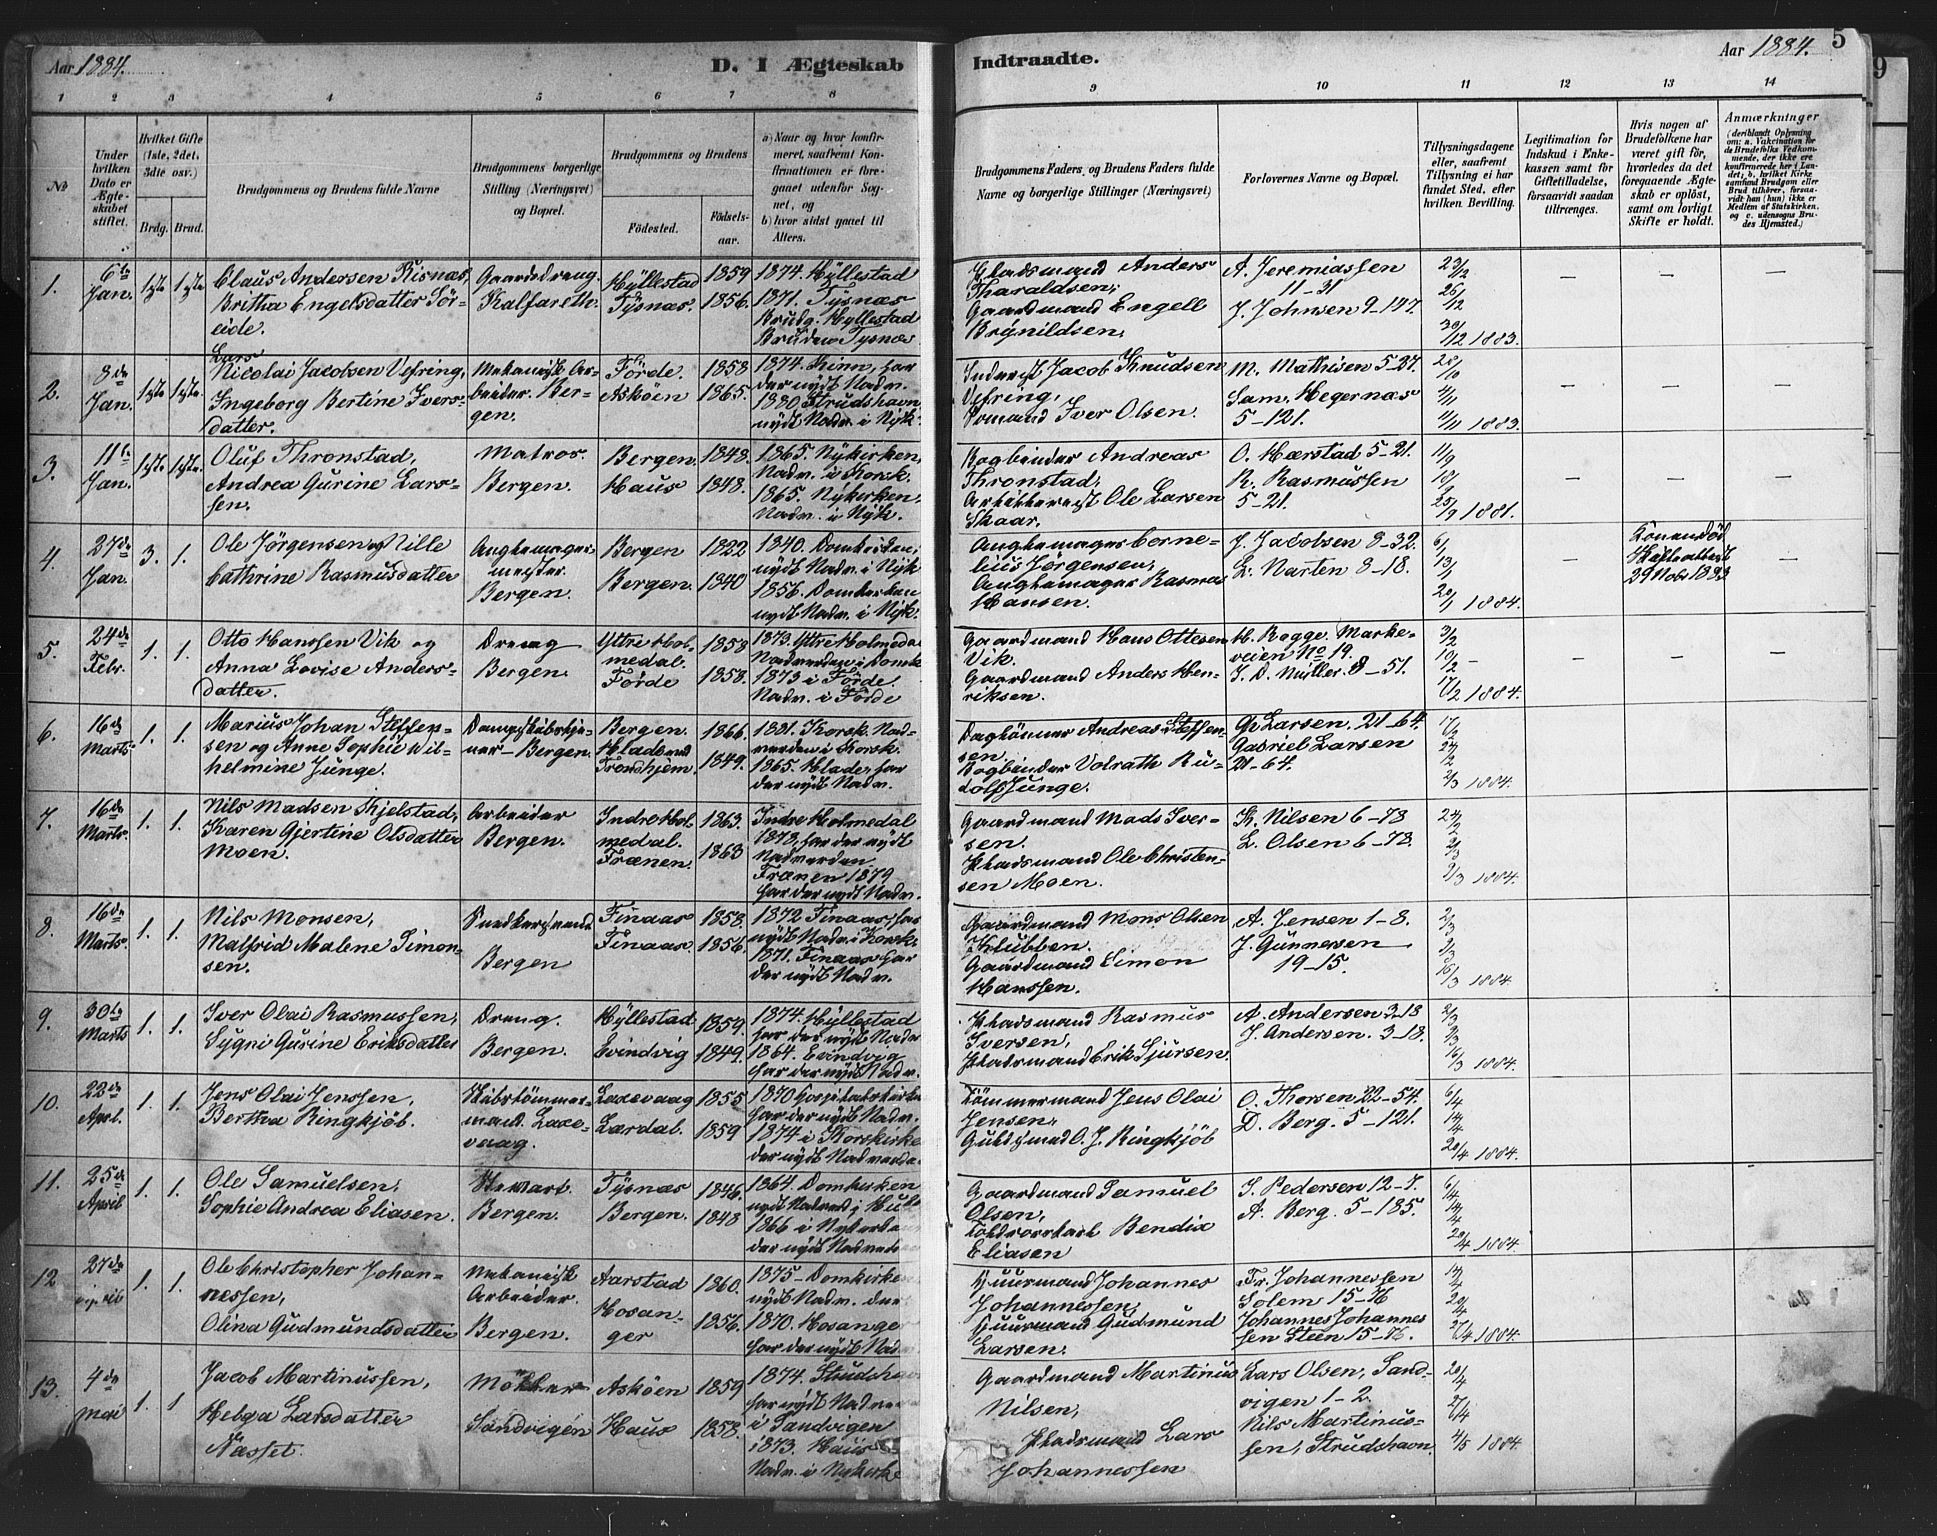 Aar 1884.
D. I Ægteskab
Indtraadte.
Aar 1884.
5
9
1 2 3 4 5 6 7 8 9 10 11 12 13 14
No
Under
hvilken
Dato er
Ægte-
skabet
stiftet.
Hvilket Gifte
(1ste, 2det,
3dte osv.)
Brdg. Brud.
Brudgommens og Brudens fulde Navne
Brudgommens borgerlige
Stilling (Næringsvei)
og Bopæl.
Brudgommens og Brudens
Fødested.
Fødsels-
aar.
a) Naar og hvor konfir-
meret, saafremt Kon-
firmationen er fore-
gaaet udenfor Sog-
net, og
b) hvor sidst gaaet til
Alters.
Brudgommens Faders, og Brudens Faders fulde
Navne og borgerlige Stillinger (Næringsvei)
Forlovernes Navne og Bopæl.
Tillysningsdagene
eller, saafremt
Tillysning ei har
fundet Sted, efter
hvilken Bevilling.
Legitimation for
Indskud i Enke-
kassen samt for
Giftetilladelse,
forsaavidt saadan
tiltrænges.
Hvis nogen af
Brudefolkene har
været gift før,
hvorledes da det
foregaaende Ægte-
skab er opløst,
samt om lovligt
Skifte er holdt.
Anmærkninger
(deriblandt Oplysning
om: a. Vakcination for
de Brudefolks Vedkom-
mende, der ikke ere
konfirmerede her i Lan-
det; b. hvilket Kirke-
samfund Brudgom eller
Brud tilhører, forsaa-
vidt han (hun) ikke er
Medlem af Statskirken,
og c. udensogns Bru-
des Hjemsted.)
1. 6te Jan. 1ste 1ste
Claus Andersen Risnæs,
Britha Engelsdatter Sør-
eide.
Gaardsdreng.
Kalfareth.
Hyllestad
Tysnæs.
1859
1856.
1874. Hyllestad
1871. Tysnæs
Brudg. Hyllestad
Bruden Tysnæs
Pladsmand Anders
Tharaldsen,
Gaardmand Engell
Brynildsen,
A. Jeremiassen
11-31
J. Johnsen 9-147.
23/12
26/12
30/12 1883.
2. 8de Jan. 1ste 1ste.
Lars
Nicolai Jacobsen Vefring,
Ingeborg Bertine Ivers-
datter.
Mekanisk Ar-
beider. Ber-
gen.
Førde.
Askøen
1858
1865.
1874. Kinn, har
der nydt Nadv.
1880 Strudshavn
nydt Nadv. i Nyk.
Inderst Jacob Knudsen
Vefring,
Iver Olsen.
M. Mathisen 5-27.
Sam. Hegernæs
5-121.
28/10
4/11
11/11 1883.
3. 11te Jan. 1ste 1ste.
Oluf Thronstad,
Andrea Gurine Lars-
sen.
Matros.
Bergen.
Bergen.
Haus
1848.
1848.
1865. Nykirken,
Nadv. i Korsk.
1865. Nykirken.
Nadv. i Nyk.
Bogbinder Andreas
Thronstad,
Ole Larsen
Skaar.
O. Hærstad 5-21.
R. Rasmussen
5-21.
11/9
18/9
25/9 1881.
4. 27de Jan. 3. 1.
Ole Jørgensen og Nille
Cathrine Rasmusdatter
meister.
Bergen.
Bergen
Bergen.
1822
1840
1840. Domkirken,
nydt Nadv. i Nyk
1856. Domkirken
nydt Nadv. i Nyk.
Corne-
lius Jørgensen,
Rasmus
Hansen.
J. Jacobsen 8-32.
L. Narten 8-18.
6/1
13/1
20/1 1884.
Konen død
Skifteattest
29 Nobr 1883
5. 24de Febr. 1. 1.
Otto Hanssen Vik og
Anna Lovise Anders-
datter.
Dreng
Bergen.
Yttre Hol-
medal.
Førde
1858
1858.
1873 Yttre Holmedal
Nadverden i Domk
1873 i Førde.
Nadv. i Førde
Gaardmand Hans Ottesen
Vik.
Gaardmand Anders Hen-
riksen.
H. Bogge. Marke-
veien No 19.
J. D. Müller. 8-51.
3/2
10/2
17/2 1884.
6. 16de Marts. 1. 1.
Marius Johan Steffen-
sen og Anne Sophie Wil-
helmine Junge.
Bergen.
Bergen.
Hlade ved
Trondhjem.
1866.
1849.
1881. Korsk. Nad-
verden i Korsk.
1865. Hlade, har
der nydt Nadv.
Andreas Steffen-
sen.
Bogbinder Volrath Ru-
dolf Junge.
Chr Larsen. 21-64.
Gabriel Larsen
21-64.
17/2
24/2
2/3 1884.
7. 16de Marts. 1. 1.
Nils Madsen Kjelstad,
Karen Gjertine Olsdatter
Moen.
Arbeider
Bergen.
Indre Hol-
medal.
Frænen.
1863.
1863
Indre Holmedal
1878, har der nydt
Nadverden
Frænen 1879
har der nydt Nadv.
Gaardmand Mads Iver-
sen.
Pladsmand Ole Christen-
sen Moen.
K. Nilsen 6-78
L. Olsen 6-78.
24/2
2/3
9/3 1884.
8. 16de Marts. 1. 1.
Nils Monsen,
Malfrid Malene Simon-
sen.
Snedkersvend
Bergen
Finaas
Finaas.
1853.
1856.
1872 Finaas, har
nydt Nadv. i Korsk.
1871. Finaas har
der nydt Nadv.
Gaardmand Mons Olsen
Klubben.
Gaardmand Simon
Hanssen.
A. Jensen 1-8.
J. Gunnersen
19-15.
2/3
9/3
16/3 1884.
9. 30te Marts 1. 1.
Iver Olai Rasmussen,
Sygni Gurine Eriksdatter
Dreng.
Bergen.
Hyllestad
Evindvig
1859
1849.
1874. Hyllestad
har der nydt Nadv
1864. Evindvig
har der nydt Nadv.
Pladsmand Rasmus
Iversen,
Pladsmand Erik Sjursen.
A. Andersen 3-18
J. Andersen. 3-18.
2/3
9/3
16/3 1884.
10. 22de April. 1. 1.
Jens Olai Jenssen,
Bertha Ringkjøb.
Skibstømmer-
mand. Laxe-
vaag.
Laxevaag
Lærdal.
1855
1859
1870 Hospitalskirken
har der nydt Nadv.
1874 i Korskirken
der nydt Nadverden
Tømmermand Jens Olai
Jensen,
Guldsmed O. J. Ringkjøb
O. Thorsen 22-54.
D. Berg. 5-121.
6/4
14/4
20/4 1884.
11. 25de April 1. 1.
Ole Samuelsen,
Sophie Andrea Eliasen.
Stewart.
Bergen.
Tysnæs
Bergen.
1846.
1848
1864. Domkirken
1866 i Nykirken
der nydt Nadverden
Gaardmand Samuel
Olsen,
Bendix
Eliasen
S. Pedersen 12-7.
A. Berg. 5-185.
6/4
14/4
20/4 1884.
12 27de April 1. 1.
Ole Christopher Johan-
nessen,
Olina Gudmundsdatter
Mekanisk
Arbeider.
Bergen.
Aarstad
Hosan-
ger
1860.
1856.
1875- Domkirken
nydt Nadv. der
1870. Hosanger
har der nydt Nadv
Johannes
Johannessen,
Gudmund
Larsen.
Fr. Johannessen
Solem 15-76
Johannes Johannes
sen Steen 15-76.
14/4
20/4
27/4 1884.
13. 4de Mai 1. 1
Jacob Martinussen,
Helga Larsdatter
Næsset.
Møller
Sandvigen
Askøen
Haus
1859
1858.
1874. Strudshavn
har nydt Nadverden
i Sandvigen
1873. Haus
Nadv. i Nykirke
Gaardmand Martinus
Nilsen,
Pladsmand Lars
Johannessen
Lars Olsen, Sand-
vigen 1-2.
Nils Martinus-
sen, Strudshavn.
20/4
27/4
4/5 1884.